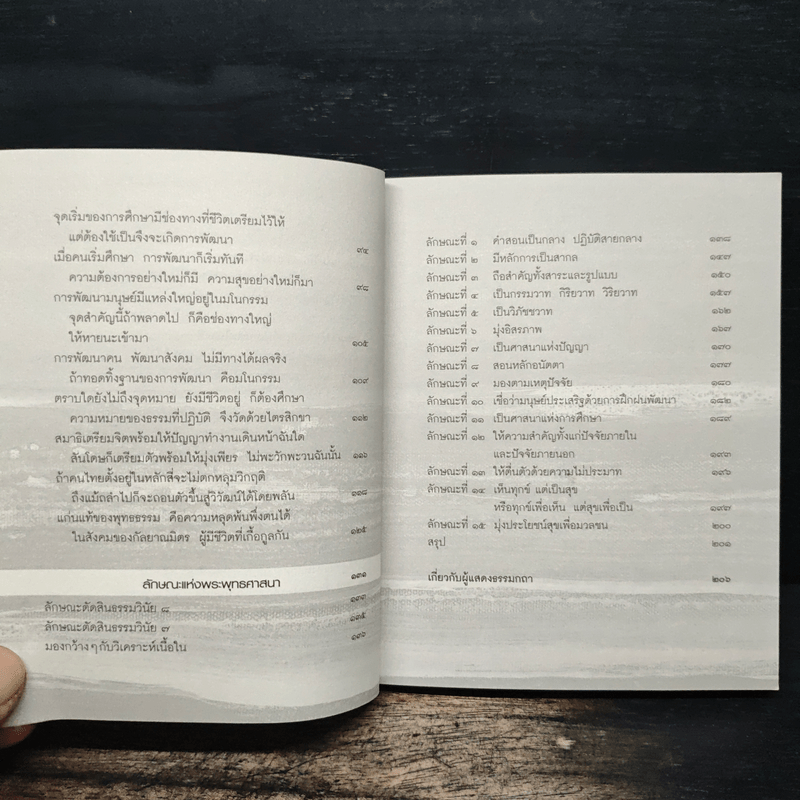 จุดเริ่มของการศึกษามีช่องทางที่ชีวิตเตรียมไว้ให้
แต่ต้องใช้เป็นจึงจะเกิดการพัฒนา ๙๔
เมื่อคนเริ่มศึกษา การพัฒนาก็เริ่มทันที
ความต้องการอย่างใหม่ก็มี ความสุขอย่างใหม่ก็มา ๙๘
การพัฒนามนุษย์มีแหล่งใหญ่อยู่ในมโนกรรม
จุดสำคัญนี้ถ้าพลาดไป ก็คือช่องทางใหญ่
ให้หายนะเข้ามา ๑๐๕
การพัฒนาคน พัฒนาสังคม ไม่มีทางได้ผลจริง
ถ้าทอดทิ้งฐานของการพัฒนา คือมโนกรรม ๑๐๙
ตราบใดยังไม่ถึงจุดหมาย ยังมีชีวิตอยู่ ก็ต้องศึกษา
ความหมายของธรรมที่ปฏิบัติ จึงวัดด้วยไตรสิกขา ๑๑๒
สมาธิเตรียมจิตพร้อมให้ปัญญาทำงานเดินหน้าฉันใด
สันโดษก็เตรียมตัวพร้อมให้มุ่งเพียร ไม่พะวักพะวนฉันนั้น ๑๑๖
ถ้าคนไทยตั้งอยู่ในหลักสี่จะไม่ตกหลุมวิกฤติ
ถึงแม้ถลำไปก็จะถอนตัวขึ้นสู่วิวัฒน์ได้โดยพลัน ๑๑๘
แก่นแท้ของพุทธธรรม คือความหลุดพ้นพึ่งตนได้
ในสังคมของกัลยาณมิตร ผู้มีชีวิตที่เกื้อกูลกัน ๑๒๕
ลักษณะแห่งพระพุทธศาสนา ๑๓๑
ลักษณะตัดสินธรรมวินัย ๘ ๑๓๓
ลักษณะตัดสินธรรมวินัย ๗ ๑๓๕
มองกว้างๆ กับวิเคราะห์เนื้อใน ๑๓๖
ลักษณะที่ ๑ คำสอนเป็นกลาง ปฏิบัติสายกลาง ๑๓๘
ลักษณะที่ ๒ มีหลักการเป็นสากล ๑๔๗
ลักษณะที่ ๓ ถือสำคัญทั้งสาระและรูปแบบ ๑๕๐
ลักษณะที่ ๔ เป็นกรรมวาท กิริยวาท วิริยวาท ๑๕๗
ลักษณะที่ ๕ เป็นวิภัชชวาท ๑๖๒
ลักษณะที่ ๖ มุ่งอิสรภาพ ๑๖๗
ลักษณะที่ ๗ เป็นศาสนาแห่งปัญญา ๑๗๐
ลักษณะที่ ๘ สอนหลักอนัตตา ๑๗๗
ลักษณะที่ ๙ มองตามเหตุปัจจัย ๑๘๐
ลักษณะที่ ๑๐ เชื่อว่ามนุษย์ประเสริฐด้วยการฝึกฝนพัฒนา ๑๘๒
ลักษณะที่ ๑๑ เป็นศาสนาแห่งการศึกษา ๑๘๙
ลักษณะที่ ๑๒ ให้ความสำคัญทั้งแก่ปัจจัยภายใน
และปัจจัยภายนอก ๑๙๓
ลักษณะที่ ๑๓ ให้ตื่นตัวด้วยความไม่ประมาท ๑๙๖
ลักษณะที่ ๑๔ เห็นทุกข์ แต่เป็นสุข
หรือทุกข์เพื่อเห็น แต่สุขเพื่อเป็น ๑๙๗
ลักษณะที่ ๑๕ มุ่งประโยชน์สุขเพื่อมวลชน ๒๐๐
สรุป ๒๐๑
เกี่ยวกับผู้แสดงธรรมกถา ๒๐๖